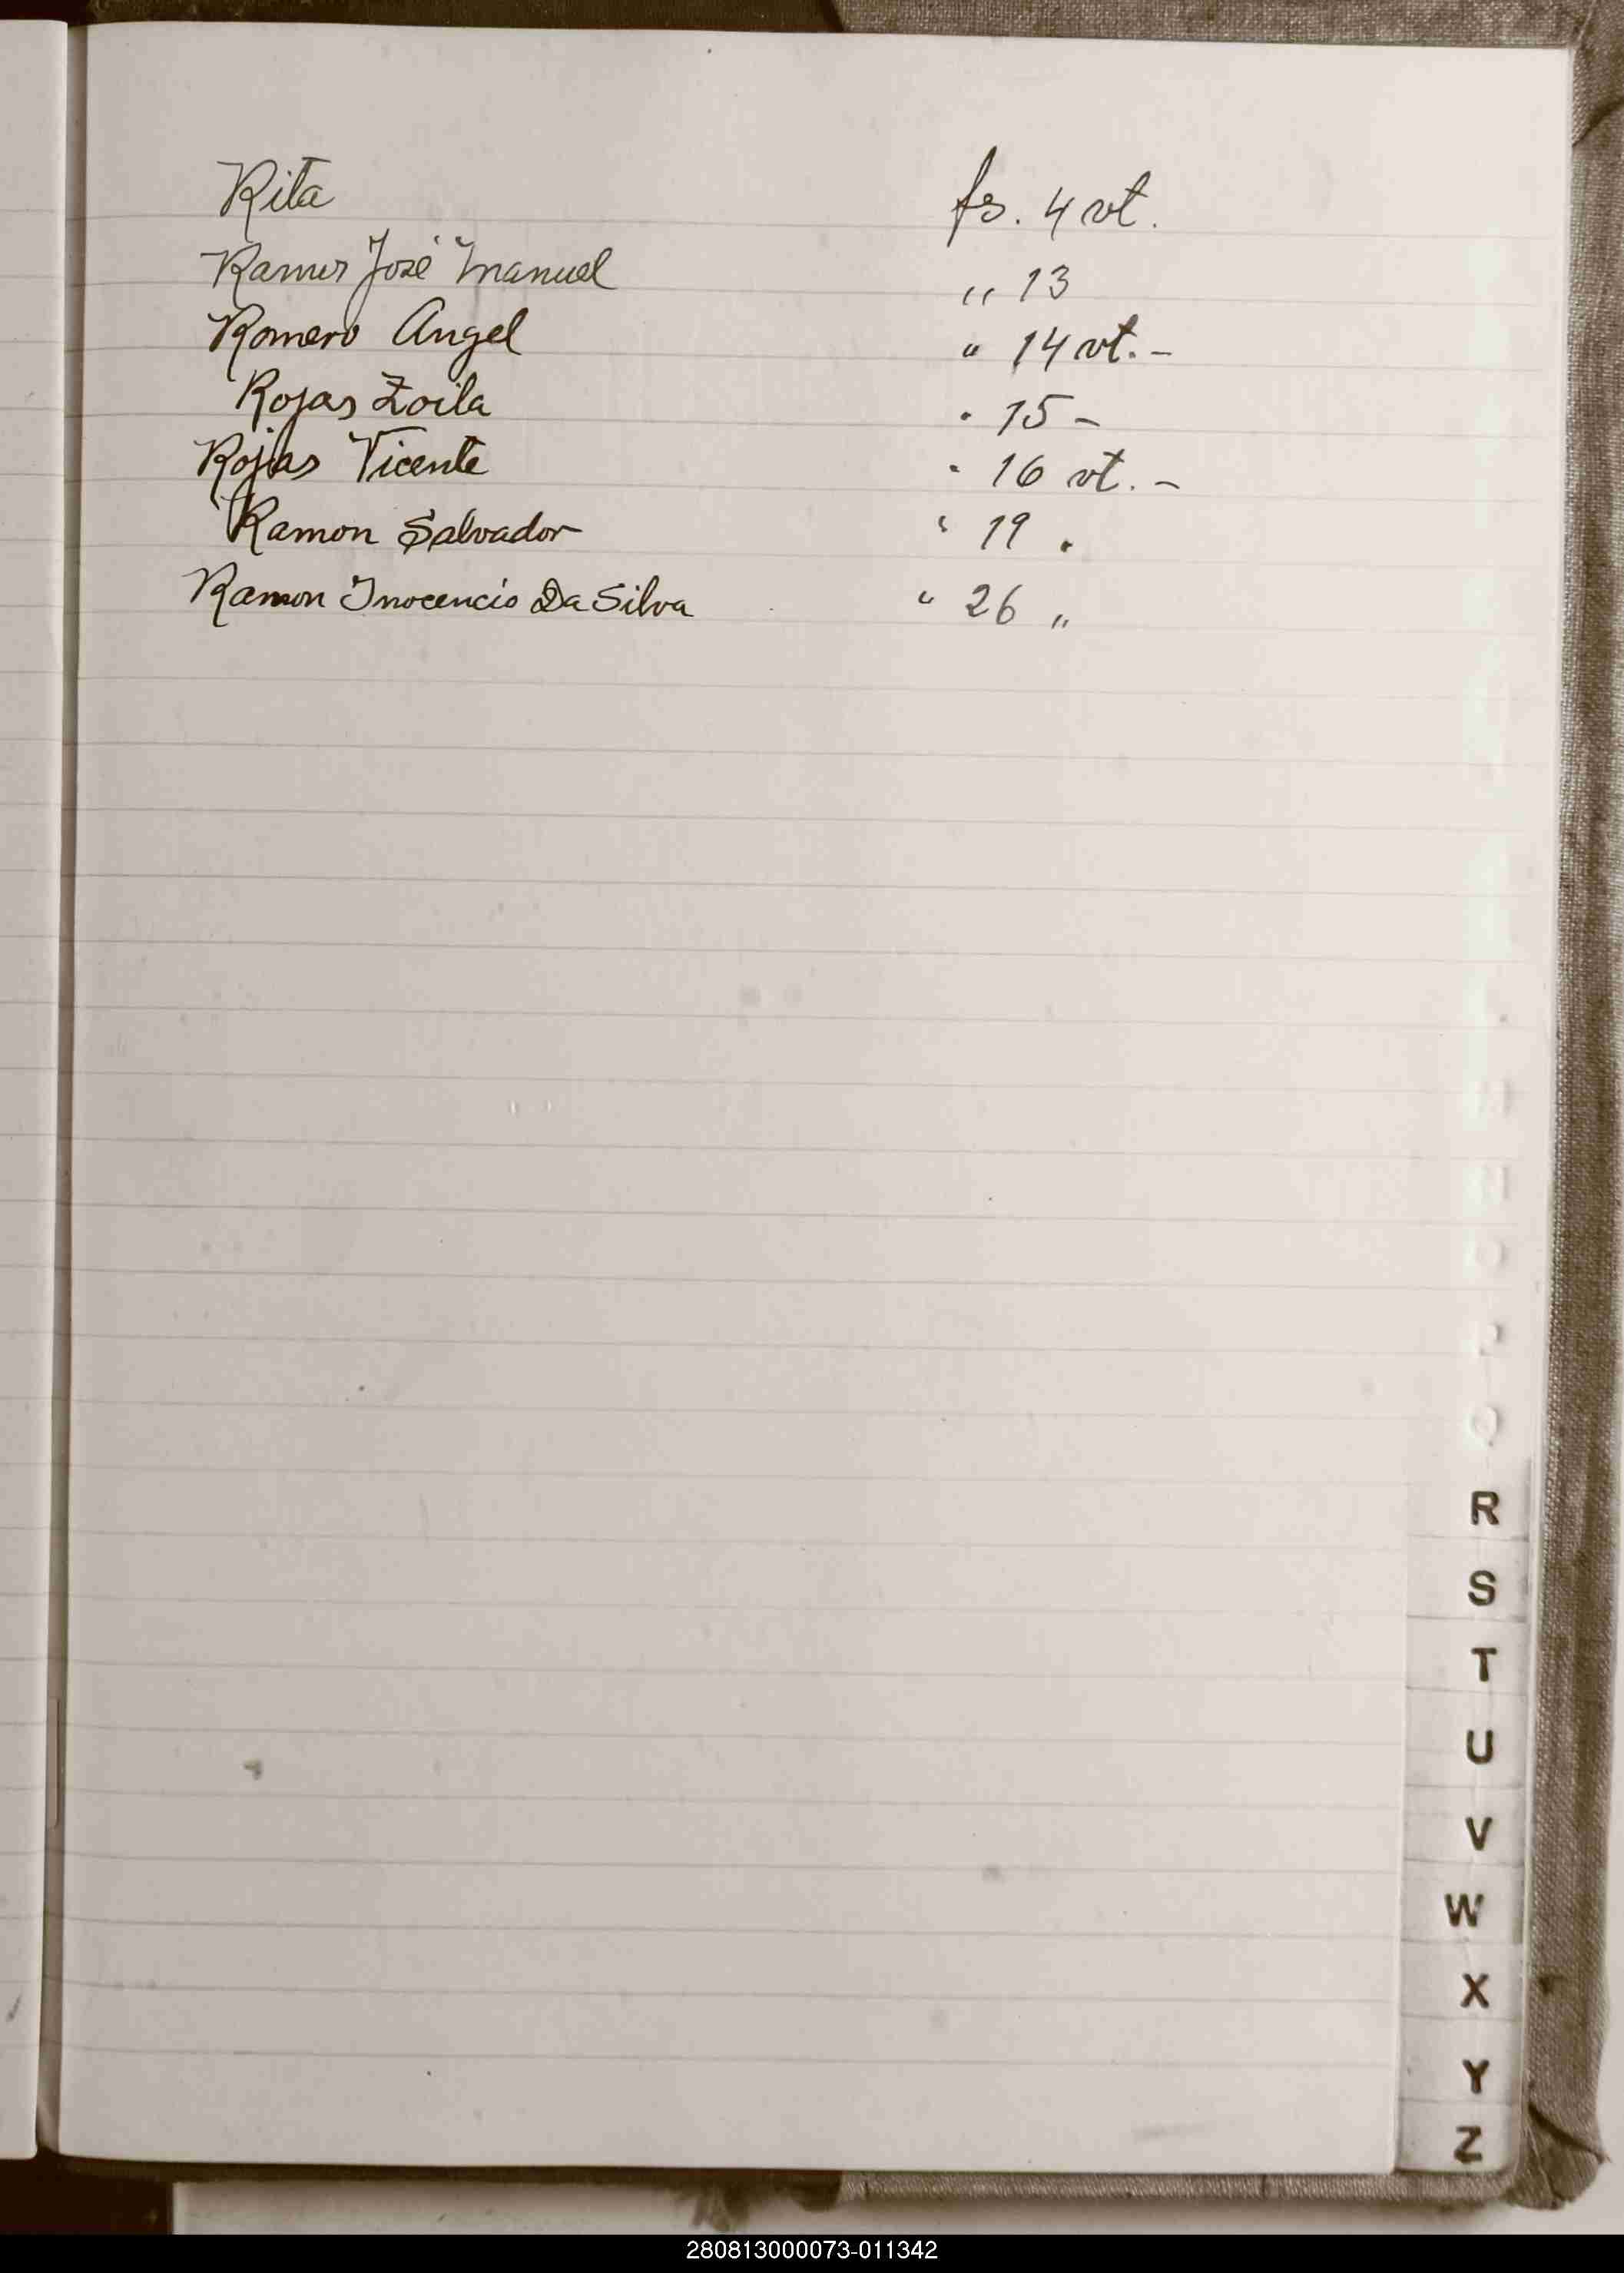 Rita fs. 4 vt.
José Manuel " 13
Romero Angel " 14 vt. -
Rojas Zoila " 15 -
Rojas Vicente " 16 vt. -
Ramon Salvador " 19 "
Ramon Inocencio Da Silva " 26 "
R
S
T
U
V
W
X
Y
Z
280813000073-011342